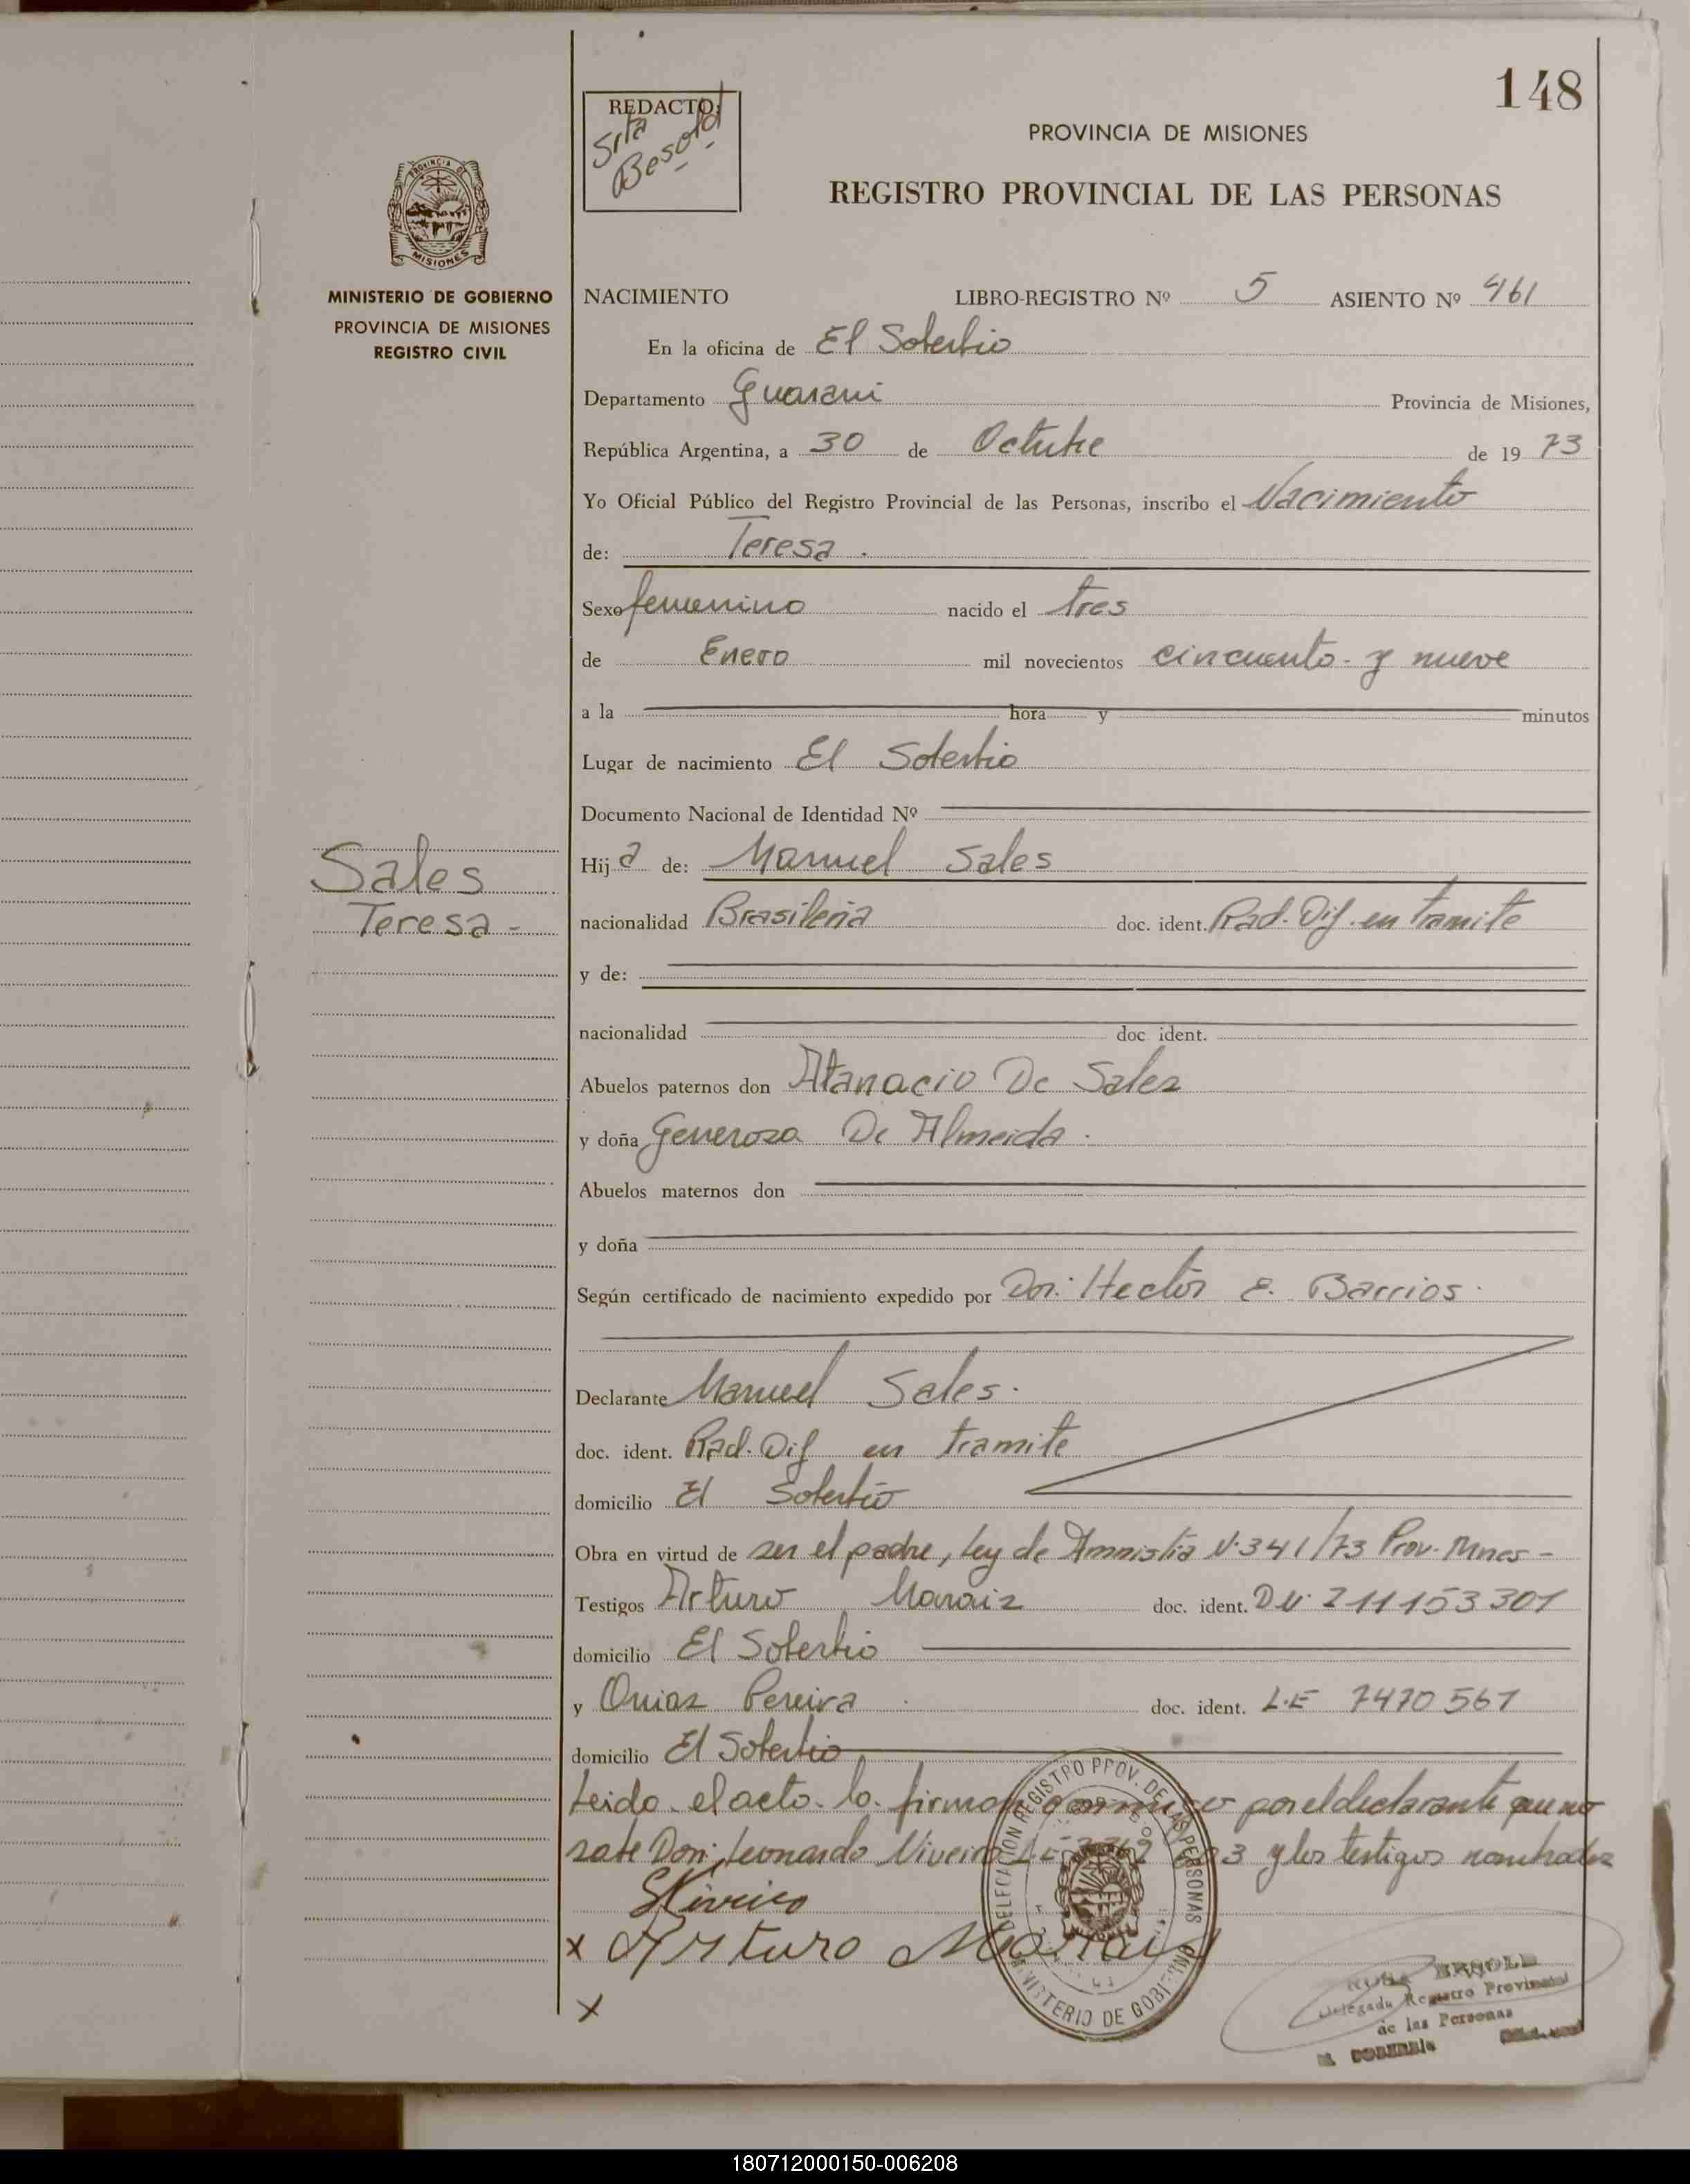 148
REDACTO:
Srta
Besold
PROVINCIA DE MISIONES
REGISTRO PROVINCIAL DE LAS PERSONAS
PROVINCIA DE
MISIONES
MINISTERIO DE GOBIERNO
PROVINCIA DE MISIONES
REGISTRO CIVIL
NACIMIENTO LIBRO-REGISTRO Nº 5 ASIENTO Nº 461
En la oficina de El Soberbio
Departamento Guarani Provincia de Misiones,
República Argentina, a 30 de Octubre de 19 73
Yo Oficial Público del Registro Provincial de las Personas, inscribo el Nacimiento
de: Teresa.
Sexo femenino nacido el tres
de Enero mil novecientos cincuenta y nueve
a la hora y minutos
Lugar de nacimiento El Soberbio
Documento Nacional de Identidad Nº
Sales
Teresa -
Hij a de: Manuel Sales
nacionalidad Brasileria doc. ident. Rad. Dif. en tramite
y de:
nacionalidad doc ident.
Abuelos paternos don Atanacio De Sales
y doña Generosa De Almeida.
Abuelos maternos don
y doña
Según certificado de nacimiento expedido por Dor. Hector E. Barrios.
Declarante Manuel Sales.
doc. ident. Rad. Dif en tramite
domicilio El Soberbio
Obra en virtud de ser el padre, Ley de Amnistia N. 341/73 Prov. Mnes -
Testigos Arturo doc. ident. 211153301
domicilio El Soberbio
y Pereira doc. ident. L.E 7470 561
domicilio El Soberbio
Leido el acto lo firman por el declarante que no
sabe Don Leonardo y los testigos nombrados
x Arturo
x
DELEGACION REGISTRO PROV. DE LAS PERSONAS
MINISTERIO DE GOBIERNO
Delegada Registro Provincial
de las Personas